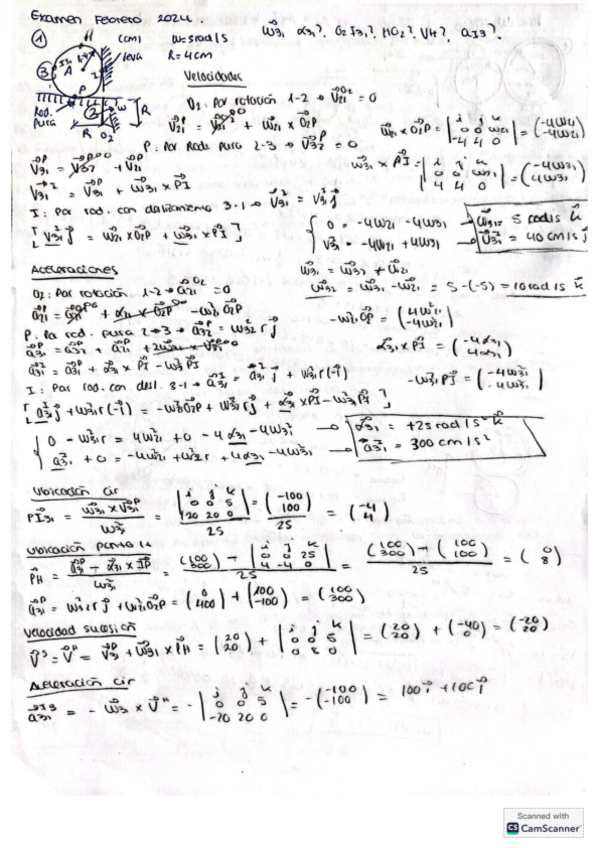 Examen Febrero 2024.
① H cam/leva w=5rad/s R=4cm
ω31? α31? O2I31? HO2? VH? aI3?
3 A I P 2 w R
Rod. pura R O2
Velocidades
O2: Por rotación 1-2 → V21^O2 = 0
V21^P = V21^O2 + ω21 x O2P
ω21 x O2P = | i j k | 0 0 ω21 | -4 4 0 | = (-4ω21 / -4ω21)
P: Por Rodd. Pura 2-3 → V32^P = 0
V31^P = V32^P + V21^P
ω31 x PI = | i j k | 0 0 ω31 | 4 4 0 | = (-4ω31 / 4ω31)
V31^I = V31^P + ω31 x PI
I: Par rod. con deslizamiento 3-1 → V31^I = V31 j
[ V31 j = ω21 x O2P + ω31 x PI ]
0 = -4ω21 - 4ω31
V31 = -4ω21 + 4ω31
ω31 = 5 rad/s k
V31^I = 40 cm/s j
Aceleraciones
ω31 = ω32 + ω21
ω32 = ω31 - ω21 = 5 - (-5) = 10 rad/s k
O2: Por rotación 1-2 → a21^O2 = 0
a21^P = a21^O2 + α21 x O2P - ω21² O2P
-ω21² O2P = (4ω21² / -4ω21²)
P: la rod. pura 2→3 → a32^P = ω32² r j
a31^P = a32^P + a21^P + 2ω21 x V32^P
α31 x PI = (-4α31 / 4α31)
a31^I = a31^P + α31 x PI - ω31² PI
-ω31² PI = (-4ω31² / -4ω31²)
I: Par rod. con desl. 3-1 → a31^I = a31^I j + ω31² r(-i)
[ a31^I j + ω31² r(-i) = -ω21² O2P + ω32² r j + α31 x PI - ω31² PI ]
0 - ω31² r = 4ω21² + 0 - 4α31 - 4ω31²
a31^I + 0 = -4ω21² + ω32² r + 4α31 - 4ω31²
α31 = +25 rad/s² k
a31^I = 300 cm/s²
Ubicación cir
PI31 = ω31 x V31^P / ω31² = | i j k | 0 0 5 | 20 20 0 | / 25 = (-100 / 100) / 25 = (-4 / 4)
Ubicación punto H
PH = a31^P - α31 x IP / ω31² = (100 / 300) - | i j k | 0 0 25 | 4 -4 0 | / 25 = (100 / 300) - (100 / 100) / 25 = (0 / 8)
a31^P = ω32² r j + ω21² O2P = (0 / 400) + (100 / -100) = (100 / 300)
Velocidad sucesión
V^S = V^H = V31^P + ω31 x PH = (20 / 20) + | i j k | 0 0 5 | 0 8 0 | = (20 / 20) + (-40 / 0) = (-20 / 20)
Aceleración cir
a31^I3 = - ω31 x V^H = - | i j k | 0 0 5 | -20 20 0 | = -(-100 / -100) = 100 i + 100 j
Scanned with
CS CamScanner